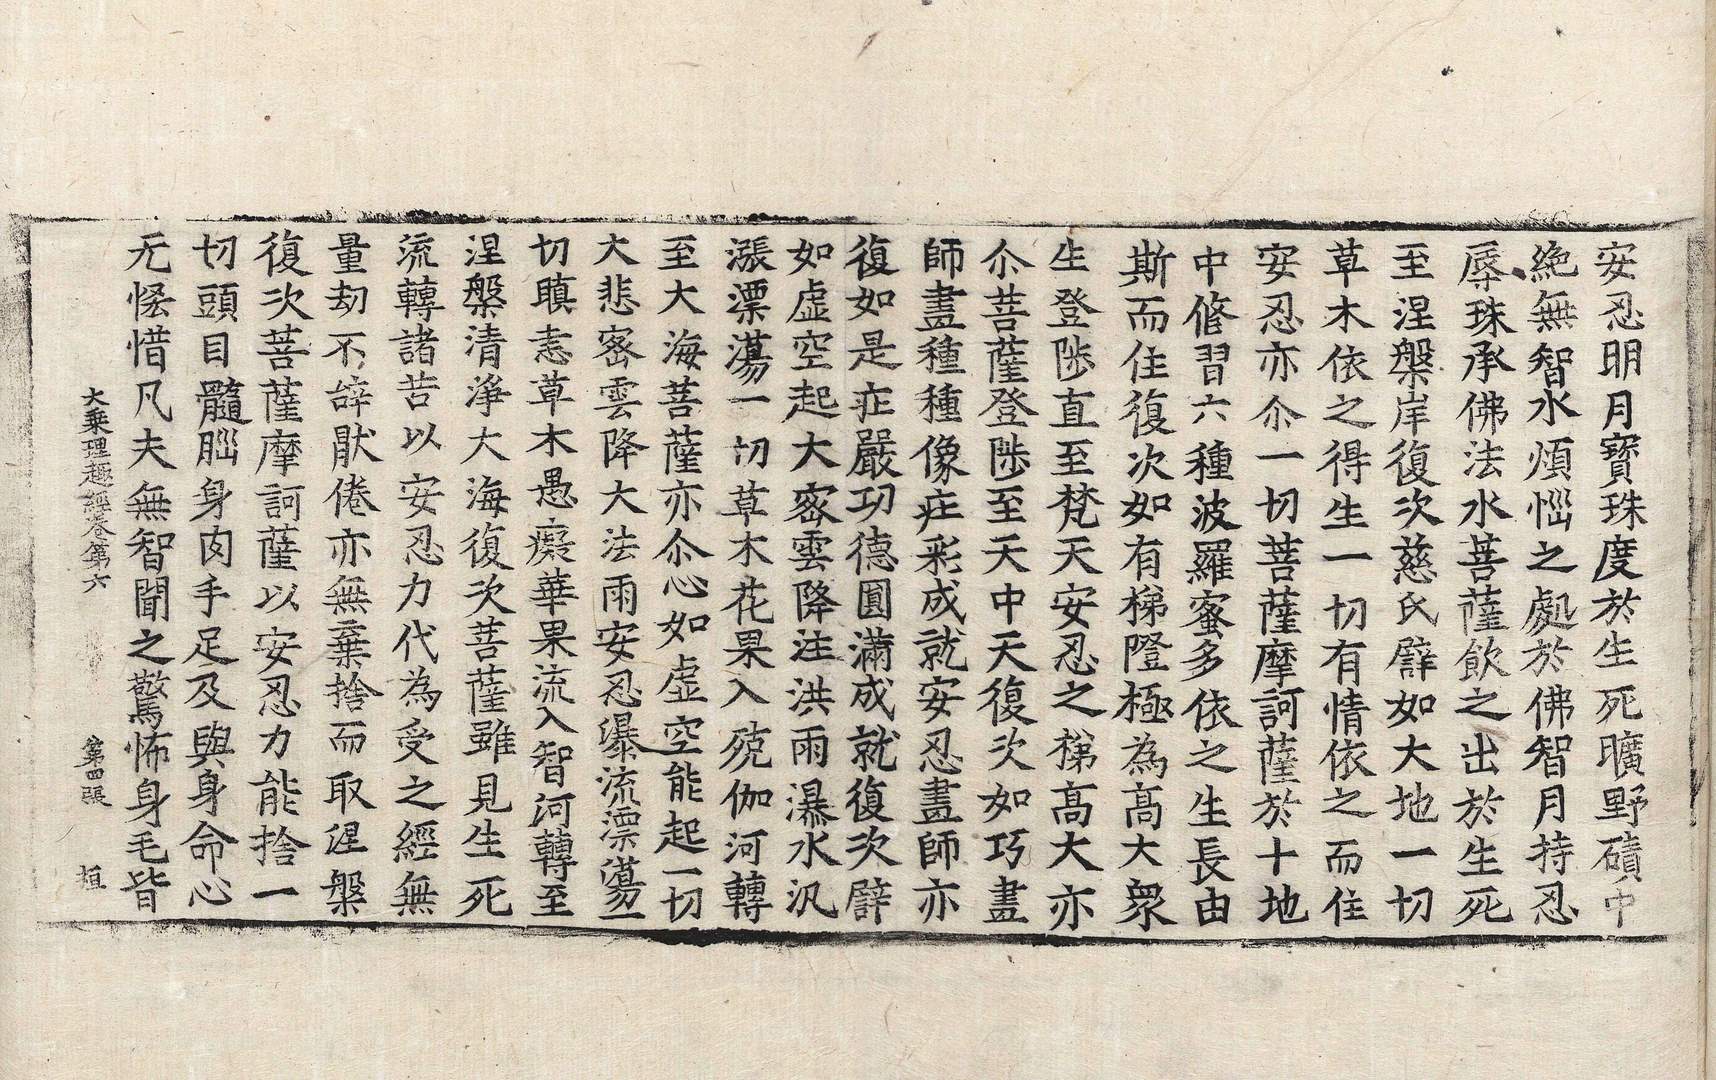 安忍明月寶珠度於生死曠野磧中
絶無智水煩惱之處於佛智月持忍
辱珠承佛法水菩薩飲之出於生死
至涅槃岸復次慈氏譬如大地一切
草木依之得生一切有情依之而住
安忍亦尒一切菩薩摩訶薩於十地
中脩習六種波羅蜜多依之生長由
斯而住復次如有梯隥極為髙大衆
生登陟直至梵天安忍之梯髙大亦
尒菩薩登陟至天中天復次如巧畫
師畫種種像庄彩成就安忍畫師亦
復如是庄嚴功德圓滿成就復次譬
如虛空起大密雲降注洪雨瀑水汎
漲漂蕩一切草木花果入殑伽河轉
至大海菩薩亦尒心如虛空能起一切
大悲密雲降大法雨安忍瀑流漂蕩一
切瞋恚草木愚癡華果流入智河轉至
涅槃清淨大海復次菩薩雖見生死
流轉諸苦以安忍力代為受之經無
量劫不辝猒倦亦無棄捨而取涅槃
復次菩薩摩訶薩以安忍力能捨一
切頭目髓腦身肉手足及與身命心
无悋惜凡夫無智聞之驚怖身毛皆
大乘理趣經卷第六 第四張 桓